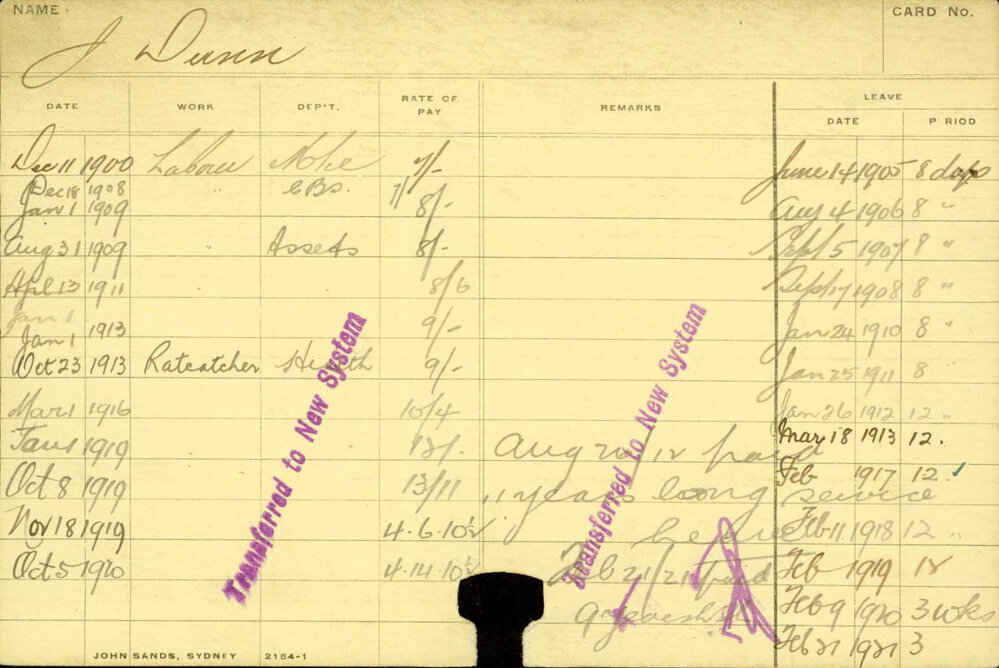 NAME CARD No.
J Dunn
DATE WORK DEP'T. RATE OF PAY REMARKS LEAVE
DATE P RIOD
Dec 11 1900 Labour 7/- June 14 1905 8 days
Dec 18 1908 " C.B.S.
Jan 1 1909 8/- Aug 4 1906 8 "
Aug 31 1909 Assets 8/- Sept 5 1907 8 "
Apl 13 1911 8/6 Sept 17 1908 8 "
Jan 1
Jan 1 1913 9/- Jan 24 1910 8 "
Oct 23 1913 Ratcatcher Health 9/- Jan 25 1911 8
Mar 1 1916 10/4 Jan 26 1912 12 "
Mar 18 1913 12.
Jan 1 1919 12/- Aug 20/12 paid
Feb 1917 12
Oct 8 1919 13/11 11 years long service
Nov 18 1919 4.6.10½ Feb 11 1918 12 "
Oct 5 1920 4.14.10½ Feb 21/21 paid Feb 1919 12
9 Feb 9 1920 3 wks
Feb 21 1921 3
Transferred to New System
Transferred to New System
JOHN SANDS, SYDNEY 2154-1